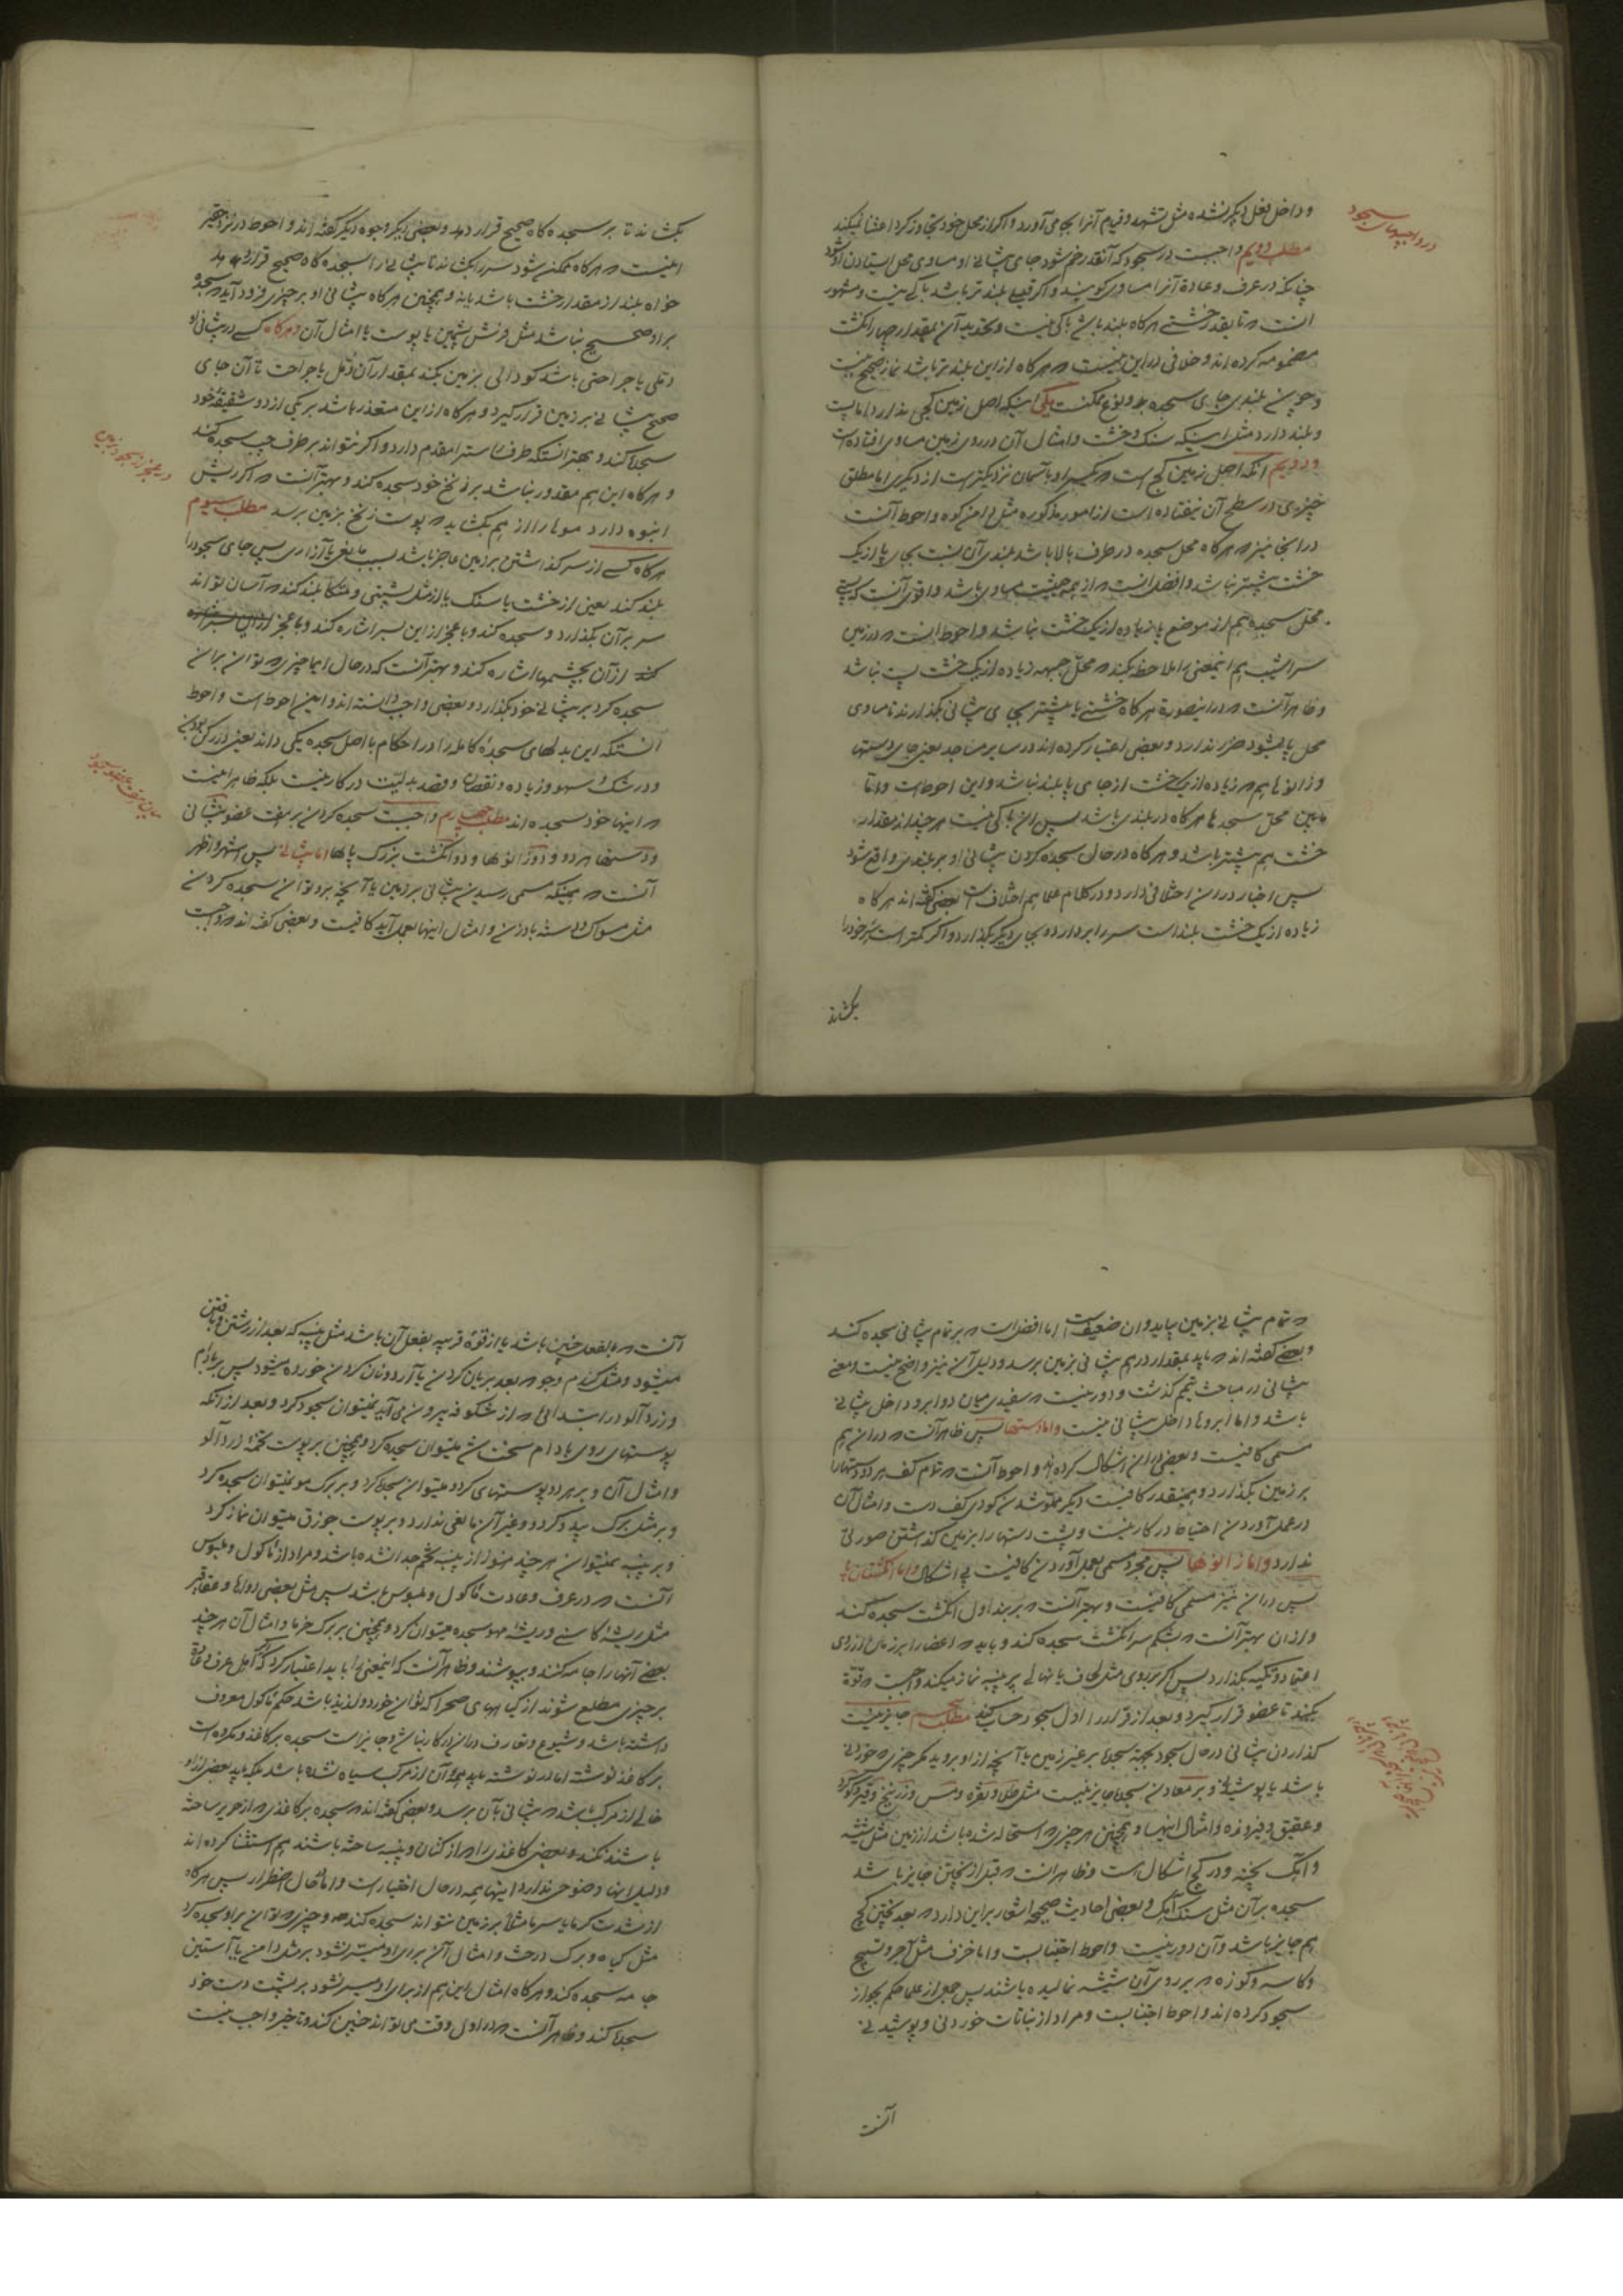 و داخل فعل دیگر نشده مثل تشهد و قیام آنرا بجا می‌آورد و اگر از محل خود تجاوز کرد اعتنا نمیکند
در واجبهای سجود
مطلب دویم واجبست در سجود که آنقدر خم شود جای پیشانی او مساوی محل ایستادن او شود
چنانکه در عرف و عادة آنرا مساوی گویند و اگر قلیلی بلندتر باشد باکی نیست و مشهور
انست که تا بقدر خشتی هرگاه بلند باشد باکی نیست و تحدید آن بمقدار چهار انگشت
مضمومه کرده‌اند و خلافی در این نیست که هرگاه از این بلندتر باشد نماز صحیح نیست
و چون بلندی جای سجده بدو نوع ممکنست یکی اینکه اصل زمین کجی ندارد اما پست
و بلند دارد مثل اینکه سنک و خشت و امثال آن در روی زمین مساوی افتاده است
و دویم آنکه اصل زمین کج است که یکسر او باسمان نزدیکتر است از دیگری اما مطلق
چیزی در سطح آن نیفتاده است از امور مذکوره مثل دامن کوه و احوط آنست
در اینجا نیز که هرگاه محل سجده در طرف بالا باشد بلندی آن نسبت بجای پا از یک
خشت بیشتر نباشد و افضل انست که از همه جهت مساوی باشد و اقوی آنست که پستی
محل سجده هم از موضع پا زیاده از یک خشت نباشد و احوط انست که در زمین
سراشیب هم اینمعنی را ملاحظه بکند که محل جبهه زیاده از یک خشت پست نباشد
و ظاهر آنست که در اینصورة هرگاه خشتی یا بیشتر بجای پیشانی بگذارند تا مساوی
محل پا بشود ضرر ندارد و بعضی اعتبار کرده‌اند در سایر مساجد یعنی جای دستها
و زانوها هم که زیاده از یک خشت از جای پا بلند نباشد و این احوط است و اما
مابین محل سجده‌ها هرگاه در بلندی باشد پس ان باکی نیست هرچند از مقدار
خشت هم بیشتر باشد و هرگاه در حال سجده کردن پیشانی او بر بلندی واقع شود
پس اخبار در ان اختلافی دارد و در کلام علما هم اختلافست بعضی گفته‌اند هرگاه
زیاده از یک خشت بلند است سر را بردارد و بجای دیگر بگذارد و اگر کمتر است سر خود را
بکشاند
بکشاند تا بر سجده‌گاه صحیح قرار دهد و بعضی دیگر وجوه دیگر گفته‌اند و احوط در نزد حقیر
اینست که هرگاه ممکن شود سر را بکشاند تا پیشانی را بسجده‌گاه صحیح قرار دهد
خواه بلند از مقدار خشت باشد یا نه و همچنین هرگاه پیشانی او بر چیزی فرود آید که سجده
بر او صحیح نباشد مثل فرش پشمین یا پوست یا امثال آن و هرگاه کسی در پیشانی او
دملی یا جراحتی باشد کودالی بزمین بکند بمقدار آن دمل یا جراحت تا آن جای
صحیح پیشانی بر زمین قرار گیرد و هرگاه از این متعذر باشد بر یکی از دو شقیقه خود
سجده کند و بهتر انستکه طرف راست را مقدم دارد و اگر نتواند بر طرف چپ سجده کند
و هرگاه این هم مقدور نباشد بر زنخ خود سجده کند و بهتر آنست که اگر ریش
انبوه دارد موها را از هم بگشاید که پوست زنخ بزمین برسد مطلب سیوم
هرگاه کسی از سر گذاشتن بر زمین عاجز باشد بسبب مانعی یا آزاری پس جای سجود را
بلند کند یعنی از خشت یا سنک یا از مثل پشتی و متکا بلند کند که آسان تواند
سر بر آن بگذارد و سجده کند و با عجز از این بسر اشاره کند و با عجز
از آن بچشمها اشاره کند و بهتر آنست که در حال ایما چیزی که توان بر آن
سجده کرد بر پیشانی خود بگذارد و بعضی واجب دانسته‌اند و این احوط است و احوط
انستکه این بدلهای سجده کامله را در احکام با اصل سجده یکی داند یعنی در رکن بودن
و در شک و سهو و زیاده و نقصان و قصد بدلیت در کار نیست بلکه ظاهر اینست
که اینها خود سجده‌اند مطلب چهارم واجبست سجده کردن بر هفت عضو پیشانی
و دستها هر دو و دو زانوها و دو انگشت بزرک پاها اما پیشانی پس اشهر و اظهر
آنست که همینکه مسمی رسیدن پیشانی بر زمین یا آنچه بر او توان سجده کردن
مثل مسواک و دسته بادزن و امثال اینها بعمل آید کافیست و بعضی گفته‌اند که واجبست
که تمام پیشانی بزمین بیاید و ان ضعیفست اما افضل است که بر تمام پیشانی سجده کند
و بعضی گفته‌اند که باید بمقدار درهم پیشانی بزمین برسد و دلیل آن نیز واضح نیست و معنی
پیشانی در مباحث تیمم گذشت و دور نیست که سفیدی میان دو ابرو داخل پیشانی
باشد و اما ابروها داخل پیشانی نیست و اما دستها پس ظاهر آنست که در ان هم
مسمی کافیست و بعضی در ان اشکال کرده‌اند و احوط آنست که تمام کف هر دو دستها را
بر زمین بگذارد و همینقدر کافیست دیگر ملوث شدن گودی کف دست و امثال آن
در عمل آوردن احتیاط در کار نیست و پشت دستها را بزمین گذاشتن صورتی
ندارد و اما زانوها پس مجرد مسمی بعمل آوردن کافیست بی اشکال و اما انگشتان پا
پس در ان نیز مسمی کافیست و بهتر آنست که بر بند اول انگشت سجده کند
و از ان بهتر آنست که بشکم سر انگشت سجده کند و باید که اعضا را بر زمین از روی
اعتماد و تکیه بگذارد پس اگر بر روی مثل لحاف یا نهالی پر پنبه نماز میکند واجبست که قوة
بکند تا عضو قرار گیرد و بعد از قرار را اول سجود حساب کند مطلب پنجم جایز نیست
گذاردن پیشانی در حال سجود بجهة سجده بر غیر زمین یا آنچه از او بروید مگر چیزی که خوردنی
باشد یا پوشیدنی و بر معادن سجده جایز نیست مثل طلا و نقره و مس و زرنیخ و قیر و گوگرد
و عقیق و فیروزه و امثال اینها و همچنین هر چیزی که استحاله شده باشد از زمین مثل شیشه
و آهک پخته و در گچ اشکال است و ظاهر انست که قبل از پختن جایز باشد
سجده بر آن مثل سنک آهک و بعضی احادیث صحیحه اشعار بر این دارد که بعد پختن گچ
هم جایز باشد و آن دور نیست و احوط اجتنابست و اما خزف مثل آجر و تسبیح
و کاسه و کوزه که بر روی آن شیشه نمالیده باشند پس جمعی از علما حکم بجواز
سجود کرده‌اند و احوط اجتنابست و مراد از نباتات خوردنی و پوشیدنی
آنست
آنست که بالفعل چنین باشد یا از قوة قریبه بفعل آن باشد مثل پنبه که بعد از رشتن و بافتن
میشود و مثل گندم و جو که بعد بریان کردن یا آرد و نان کردن خورده میشود پس بر بادام
و زردآلو در ابتدائی که از شکوفه بیرون می‌آید نمیتوان سجود کرد و بعد از آنکه
پوستهای روی بادام سخت شد میتوان سجده کرد و همچنین بر پوست تخمه زردآلو
و امثال آن و بر هر دو پوستهای گردو میتوان سجده کرد و بر برک مو نمیتوان سجده کرد
و بر مثل برک بید و گردو و غیر آن مانعی ندارد و بر پوست جوزق میتوان نماز کرد
و بر پنبه نمیتوان هرچند هنوز از پنبه تخم جدا نشده باشد و مراد از مأکول و ملبوس
آنست که در عرف و عادت مأکول و ملبوس باشد پس مثل بعضی دواها و عقاقیر
مثل ریشه کاسنی و ریشه مهو سجده میتوان کرد و همچنین بر برک خرما و امثال آن هرچند
بعضی آنها را جامه کنند و بپوشند و ظاهر آنست که اینمعنی را باید اعتبار کرد که اگر اهل عرف و عادة
بر چیزی مطلع شوند از گیاههای صحرا که توان خورد و لذیذ باشد حکم مأکول معروف
داشته باشد و شیوع و تعارف در ان در کار نباشد و جایز است سجده بر کاغذ و مکروه است
بر کاغذ نوشته اما در نوشته باید همه آن از مرکب سیاه نشده باشد بلکه باید بعضی از او
خالی از مرکب باشد که پیشانی بآن برسد و بعضی گفته‌اند که سجده بر کاغذی که از حریر ساخته
باشند نکند و بعضی کاغذی را که از کتان و پنبه ساخته باشند هم استثنا کرده‌اند
و دلیل اینها وضوحی ندارد اینها همه در حال اختیار است و اما حال اضطرار پس هرگاه
از شدت گرما یا سرما مثلا بر زمین نتواند سجده کند و چیزی که توان بر او سجده کرد
مثل گیاه و برک درخت و امثال آن برای او میسر نشود بر مثل دامن یا آستین
جامه سجده کند و هرگاه امثال این هم از برای او میسر نشود بر پشت دست خود
سجده کند و ظاهر آنست که در اول وقت می‌تواند چنین کند و تاخیر واجب نیست